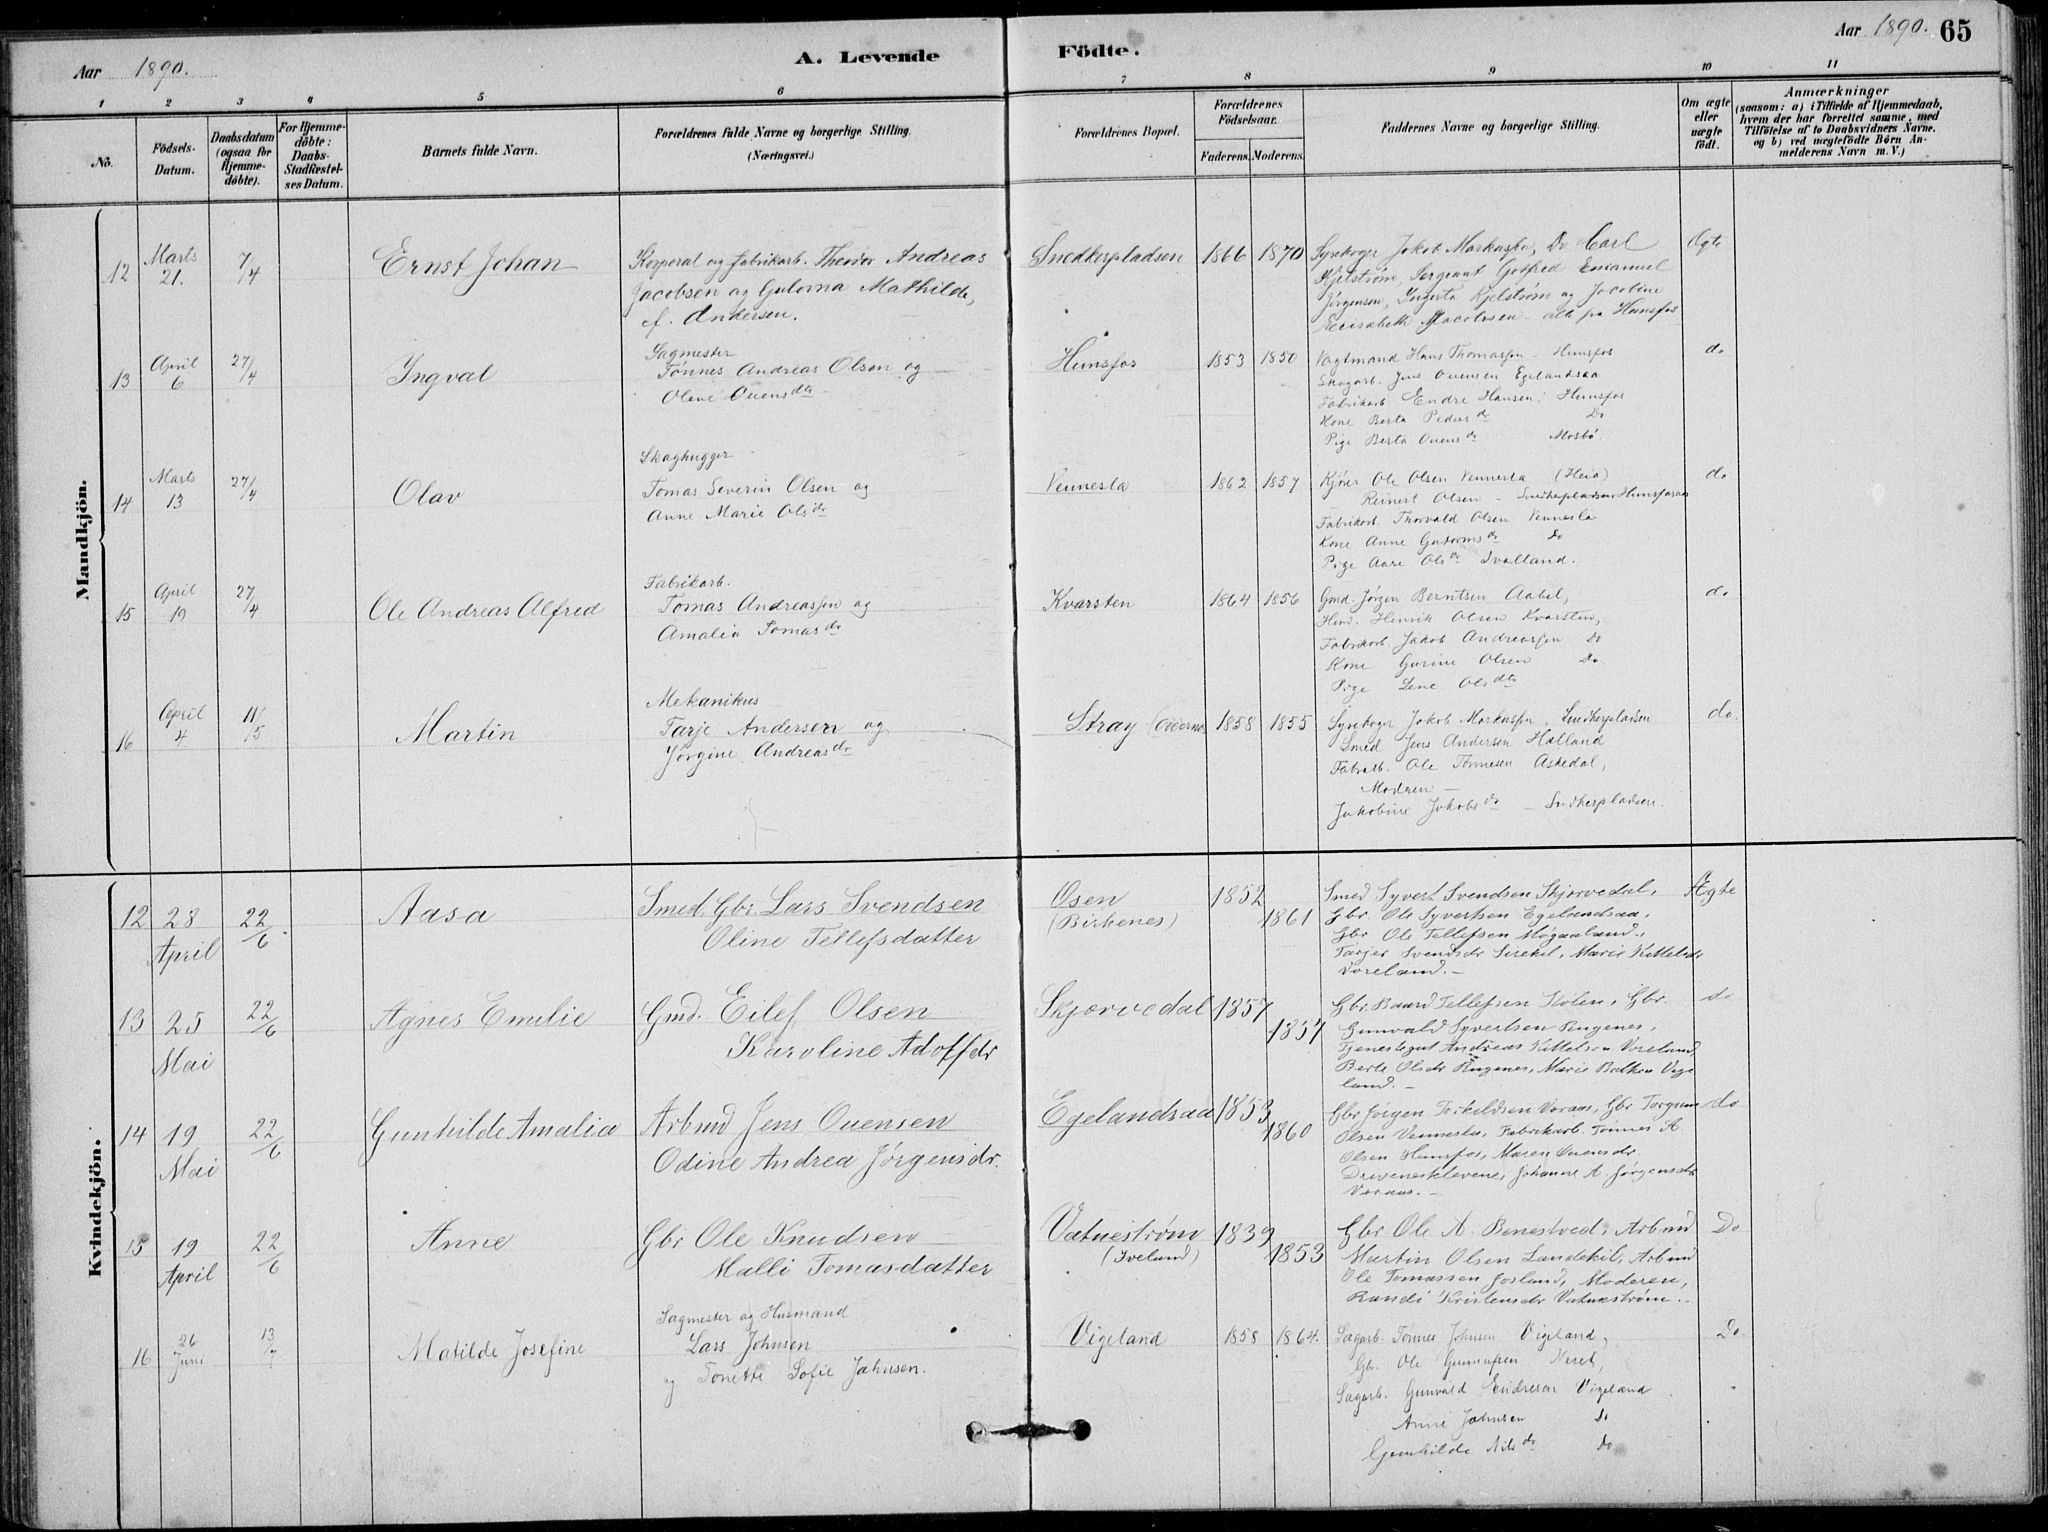 Aar 1890.
A. Levende
Födte.
Aar 1890. 65
1 2 3 4 5 6 7 8 9 10 11
No.
Födsels-Datum.
Daabsdatum (ogsaa for Hjemme-döbte).
For Hjemme-döbte: Daabs-Stadfæstel-ses Datum.
Barnets fulde Navn.
Forældrenes fulde Navne og borgerlige Stilling.
(Næringsvei.)
Forældrenes Bopæl.
Forældrenes Födselsaar.
Faderens. Moderens.
Faddernes Navne og borgerlige Stilling.
Om ægte eller uægte födt.
Anmærkninger
(saasom: a) i Tilfælde af Hjemmedaab, hvem der har forrettet samme, med Tilföielse af to Daabsvidners Navne. og b) ved uægtefödte Börn An-melderens Navn m. V.)
Mandkjön.
12 Marts 21. 7/4 Ernst Johan
Korporal og fabrikarb. Theodor Andreas
Jacobsen og Gulovna Mathilde,
f. Andersen.
Snedkerpladsen 1866 1870
Syrekoger Jokob Markussen, Do Carl
Kjelstrøm, Sergeant Gotfred Emanuel
Jørgensen, Ingerta Kjelstrøm og Jacobine
Elisabeth Jacobsen - alle fra Hunsfos
Ægte
13 April 6 27/4 Ingval
Sagmester
Tønnes Andreas Olsen og
Olene Ouensdtr
Hunsfos 1853 1850
Vagtmand Hans Thomassen - Hunsfos
Skogarb. Jens Ouensen Egelandsaa
Fabrikarb. Endre Hansen, Hunsfos
Kone Berta Pedersdr Do
Pige Berta Ouensdr Mosbø
do
14 Marts 13 27/4 Olav
Skoghugger
Tomas Severin Olsen og
Anne Marie Olsdr
Vennesla 1862 1857
Kjører Ole Olsen Vennesla (Heia)
Reinert Olsen - Snedkerpladsen Hunsfosaas
Fabrikarb. Thorvald Olsen Vennesla
Kone Anne Gutormsdr Do
Pige Aase Olsdr Ivalland.
do
15 April 19 27/4 Ole Andreas Alfred
Fabrikarb.
Tomas Andreassen og
Amalia Tomasdr
Kvarsten 1864 1856
Gmd. Jörgen Berntsen Aabel,
Hmd. Henrik Olsen Kvarsten,
Fabrikarb. Jakob Andreassen Do
Kone Gurine Olsen Do
Pige Lene Olsdtr
do
16 April 4 11/5 Martin
Mekanikus
Tarje Andersen og
Jörgine Andreasdr
Stray 1858 1855
Syrekoger Jokob Markussen, Snedkerpladsen
Smed Jens Andersen Hælland
Fabrarb. Ole Tönnesen Askedal,
Modren -
Jakobine Jakobsdr - Snedkerpladsen.
do.
Kvindekjön.
12 28 April 22/6. Aasa
Smed, Gbr Lars Svendsen
Oline Tellefsdatter
Osen
(Birkenes)
1852 1861
Smed Syvert Svendsen Skjærvedal,
Gbr. Ole Syvertsen Egelandsaa,
Gbr Ole Tellefsen Mögaaland.,
Tarjer Svendsdr Sirekil, Marie Kittelsdr
Voreland. -
Ægte
13 25 Mai 22/6 Agnes Emilie
Gmd. Eilef Olsen
Karoline Adolfsdr
Skjærvedal 1857 1857
Gbr. Baard Tellefsen Stölen, Gbr.
Gunvald Syvertsen Rugenes,
Tjenestegut Andreas Kittelsen Voreland
Berte Olsdr Rugenes, Marie Balken Vige
land. -
do
14 19 Mai 22/6 Gunhilde Amalia
Arbmd Jens Ouensen
Odine Andrea Jörgensdr.
Egelandsaa 1853 1860
Gbr Jörgen Torkildsen Voraas, Gbr Torgrim
Olsen Vennesla, Fabrikarb. Tönnes A.
Olsen Hunsfos, Maren Ouensdr
Drivenesklevene, Johanne A. Jörgensdr
Voraas. -
do
15 19 April 22/6 Anne
Gbr Ole Knudsen
Malli Tomasdatter
Vatneström
(Iveland)
1839 1853
Gbr Ole A. Benestved, Arbmd
Martin Olsen Landekil, Arbmd
Ole Tomassen Josland, Moderen,
Randi Kristensdr Vatneström. -
Do
16 26 Juni 13/7 Matilde Josefine
Sagmester og Husmand
Lars Johnsen
og Tonette Sofie Jahnsen.
Vigeland 1858 1864.
Sagarb. Tönnes Johnsen Vigeland,
Gbr. Ole Gunnufsen Neset,
Sagarb. Gunvald Endresen Vigeland
Anne Jahnsen Do
Gunhilde Nilsdr Do
Do